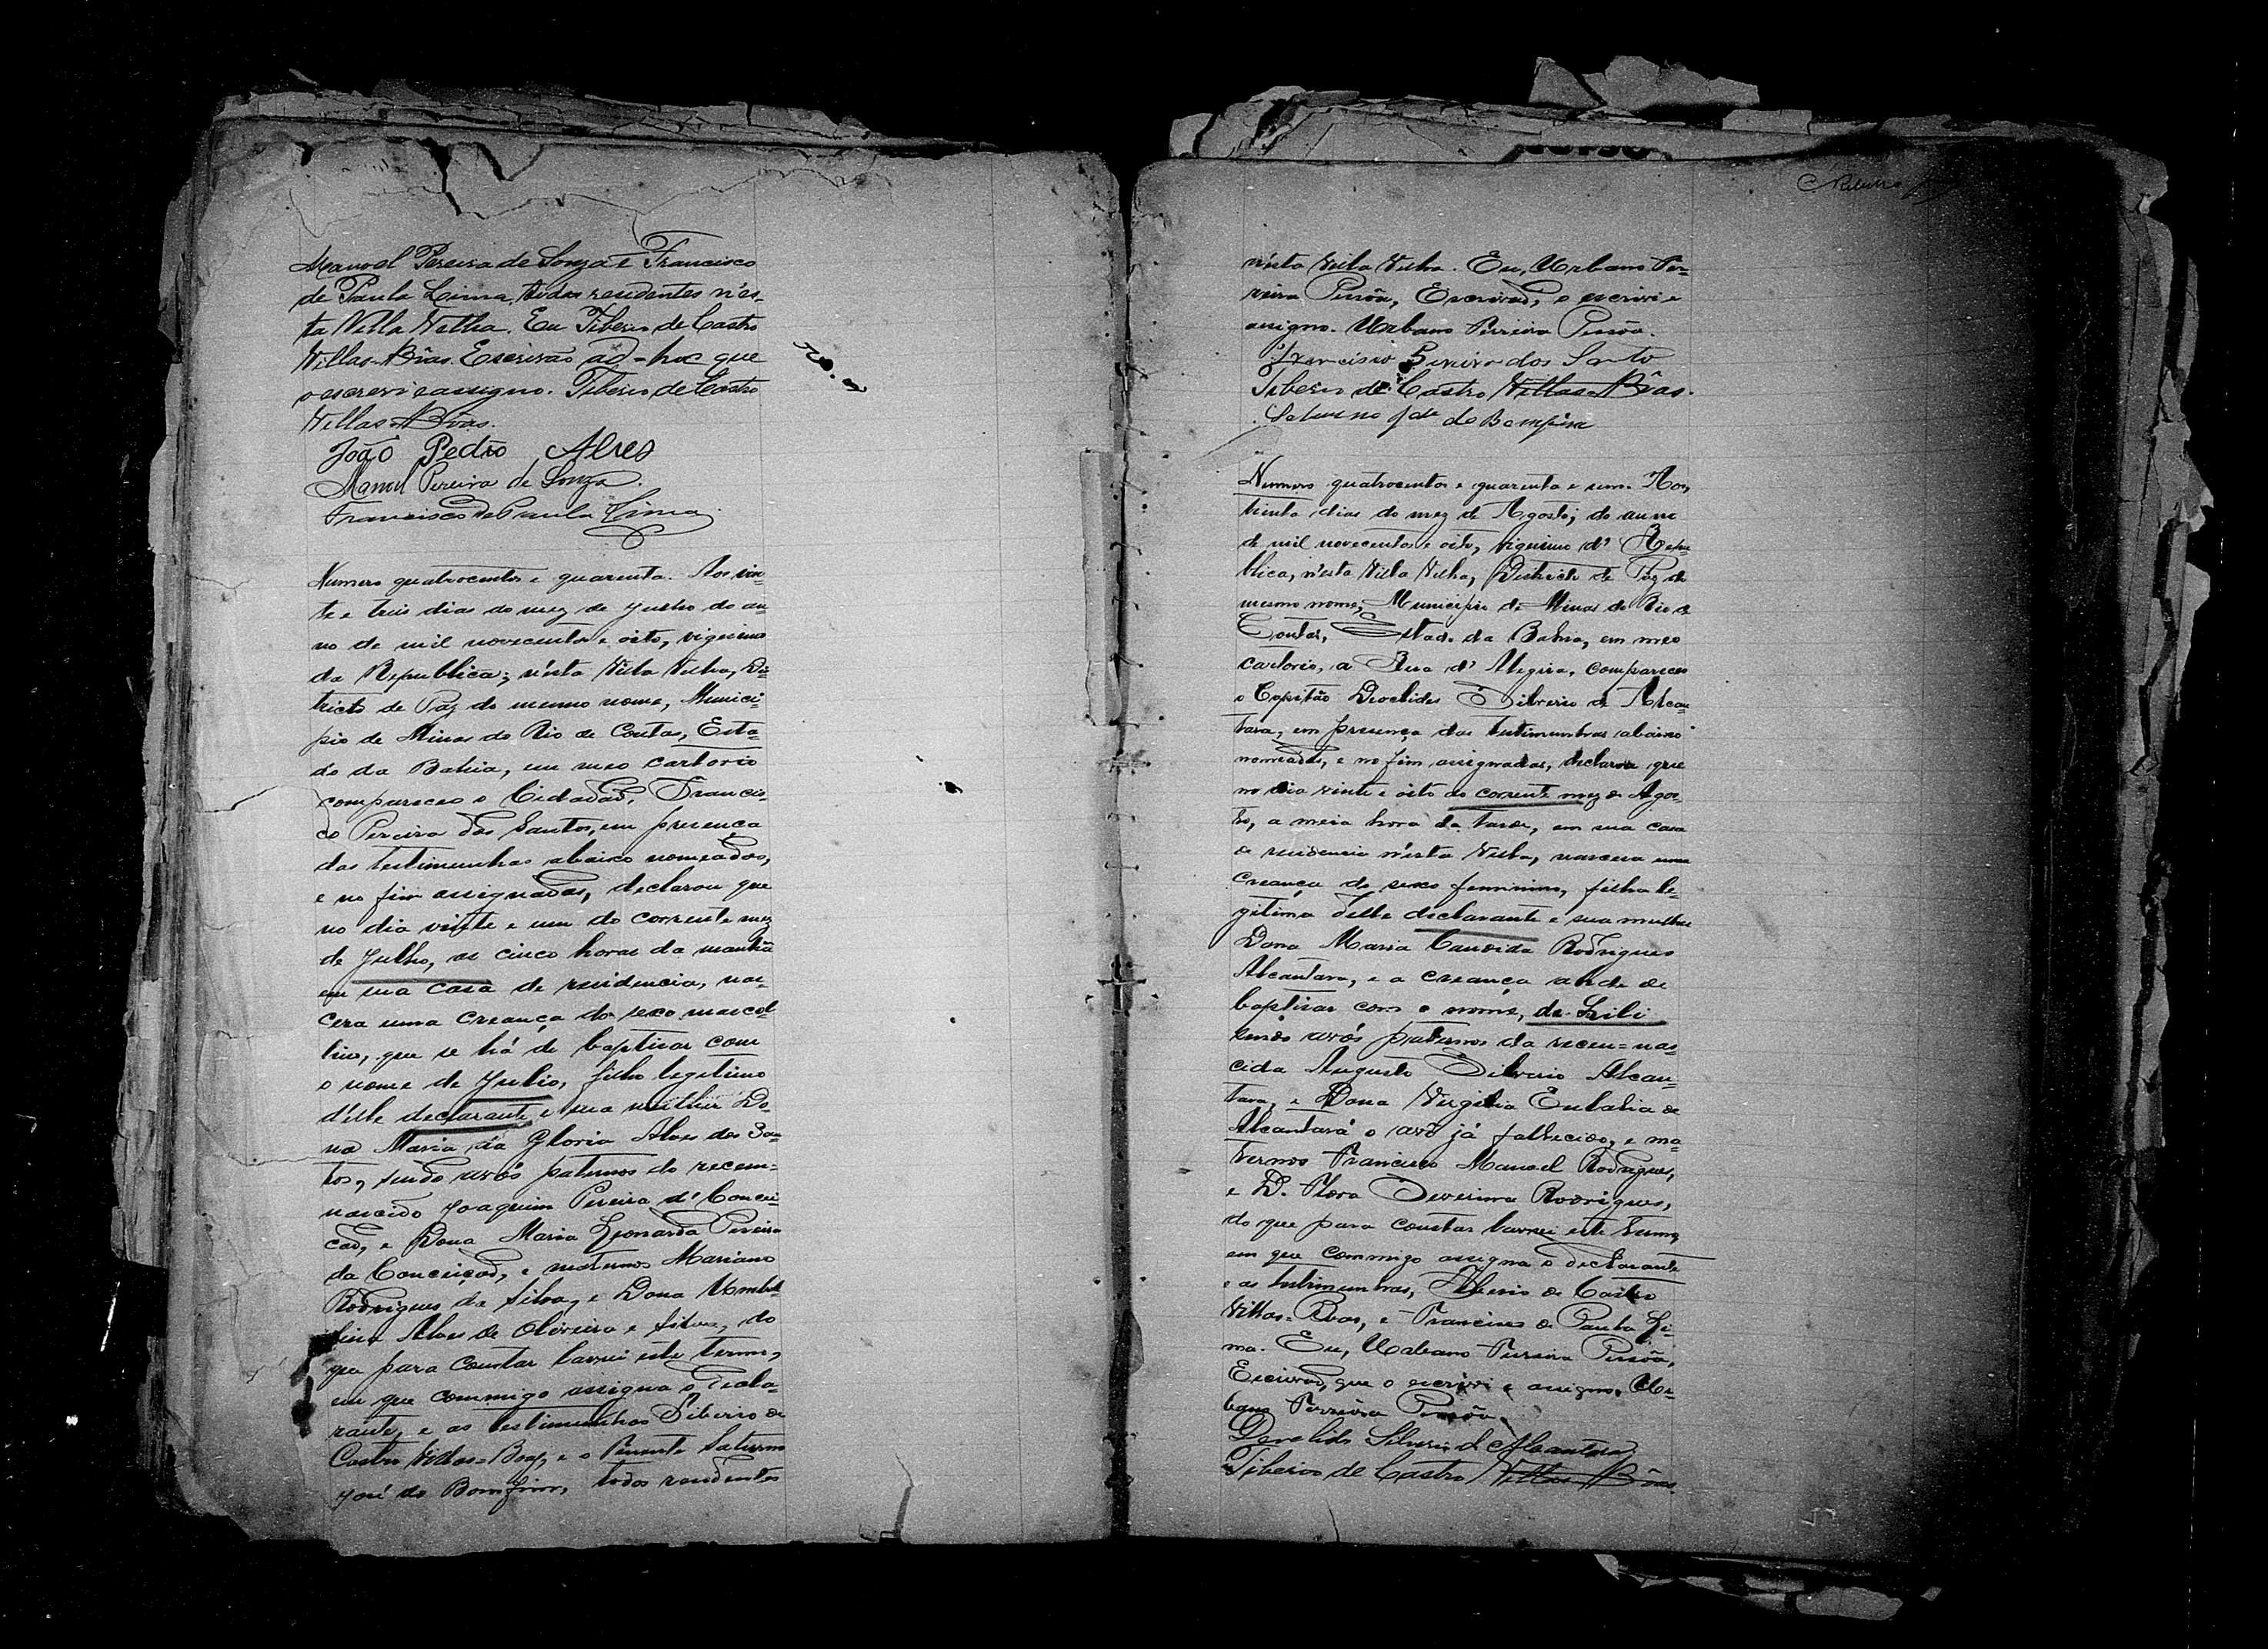 Manoel Pereira de Souza e Francisco
de Paula Lima, todos residentes n'es-
ta Villa Velha. Eu Tiberio de Castro
Villas-Bôas. Escrivão ad-hoc que
o escrevi e assigno. Tiberio de Castro
Villas-Bôas.
João Pedro Alves
Manoel Pereira de Souza
Francisco de Paula Lima
Numero quatrocentos e quarenta. Aos vin-
te e tres dias do mez de Julho do an-
no de mil novecentos e oito, vigesimo
da Republica; n'esta Villa Velha, Dis-
tricto de Paz do mesmo nome, Munici-
pio de Minas do Rio de Contas, Esta-
do da Bahia, em meo cartorio
compareceo o Cidadão, Francis-
co Pereira dos Santos, em presença
das testimunhas abaixo nomeadas,
e no fim assignadas, declarou que
no dia vinte e um do corrente mez
de Julho, as cinco horas da manhã
em sua casa de residencia, nas-
cera uma creança do sexo mascul-
lino, que se há de baptisar com
o nome de Julio, filho legitimo
d'elle declarante e sua mulher Do-
na Maria da Gloria Alves dos San-
tos, sendo avós paternos do recem-
nascido Joaquim Pereira d' Concei-
ção, e Dona Maria Leonarda Pereira
da Conceição, e maternos Mariano
Rodrigues da Silva, e Dona Umbel-
lina Alves de Oliveira e Silva, do
que para constar lavrei este termo,
em que commigo assigna o decla-
rante, e as testimunhas Tiberio de
Castro Villas-Boas, e o Tenente Saturno
José do Bomfim, todos residentes
n'esta Villa Velha. Eu, Urbano Fer-
reira Pessôa, Escrivão, o escrivi e
assigno. Urbano Ferreira Pessôa.
Francisco Pereira dos Santo
Tiberio de Castro Villas-Bôas.
Saturno José do Bomfim
Numero quatrocentos e quarenta e um. Aos
trinta dias do mez de Agosto; do anno
de mil novecentos e oito, vigesimo d' Repu-
blica, n'esta Villa Velha, Districto de Paz do
mesmo nome, Municipio de Minas do Rio de
Contas, Estado da Bahia, em meo
cartorio, a Rua d' Alegria, compareceo
o Capitão Deoclides Silverio de Alcan-
tara, em presença das testimunhas abaixo
nomeadas, e no fim assignadas, declarou que
no dia vinte e oito do corrente mez de Agos-
to, a meia hora da tarde, em sua casa
de residencia n'esta Villa, nascera uma
creança do sexo feminino, filha le-
gitima d'elle declarante e sua mulher
Dona Maria Candida Rodrigues
Alcantara, e a creança a de se
baptisar com o nome, de Lili
sendo avós paternos da recem-nas-
cida Augusto Silverio Alcan-
tara, e Dona Virgilia Eulalia de
Alcantara o avô já fallecido, e ma-
ternos Francisco Manoel Rodrigues,
e D. Flora Severina Rodrigues,
do que para constar lavrei este termo,
em que commigo assigna o declarante
e as testimunhas, Tiberio de Castro
Villas-Boas, e Francisco de Paula Li-
ma. Eu, Urbano Ferreira Pessôa,
Escrivão, que o escrivi e assigno. Ur-
bano Ferreira Pessôa.
Deoclides Silverio de Alcantara
Tiberio de Castro Villas-Bôas.